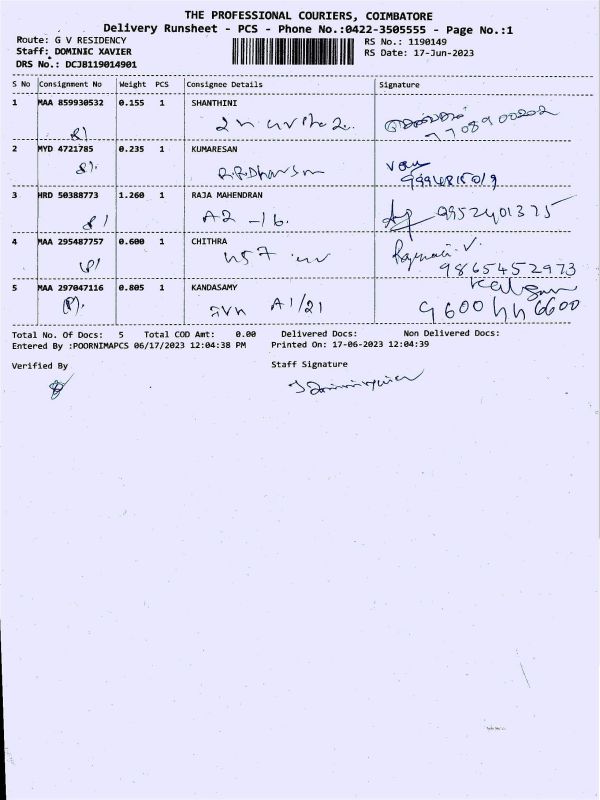 THE PROFESSIONAL COURIERS, COIMBATORE
Delivery Runsheet - PCS - Phone No.:0422-3505555 - Page No.:1
Route: G V RESIDENCY RS No.: 1190149
Staff: DOMINIC XAVIER RS Date: 17-Jun-2023
DRS No.: DCJB119014901
S No Consignment No Weight PCS Consignee Details Signature
1 MAA 859930532 0.155 1 SHANTHINI
2 MYD 4721785 0.235 1 KUMARESAN
3 HRD 50388773 1.260 1 RAJA MAHENDRAN
A2 -16. 9952401325
4 MAA 295487757 0.600 1 CHITHRA
9865452973
5 MAA 297047116 0.805 1 KANDASAMY
A1/21
Total No. Of Docs: 5 Total COD Amt: 0.00 Delivered Docs: Non Delivered Docs:
Entered By :POORNIMAPCS 06/17/2023 12:04:38 PM Printed On: 17-06-2023 12:04:39
Verified By Staff Signature